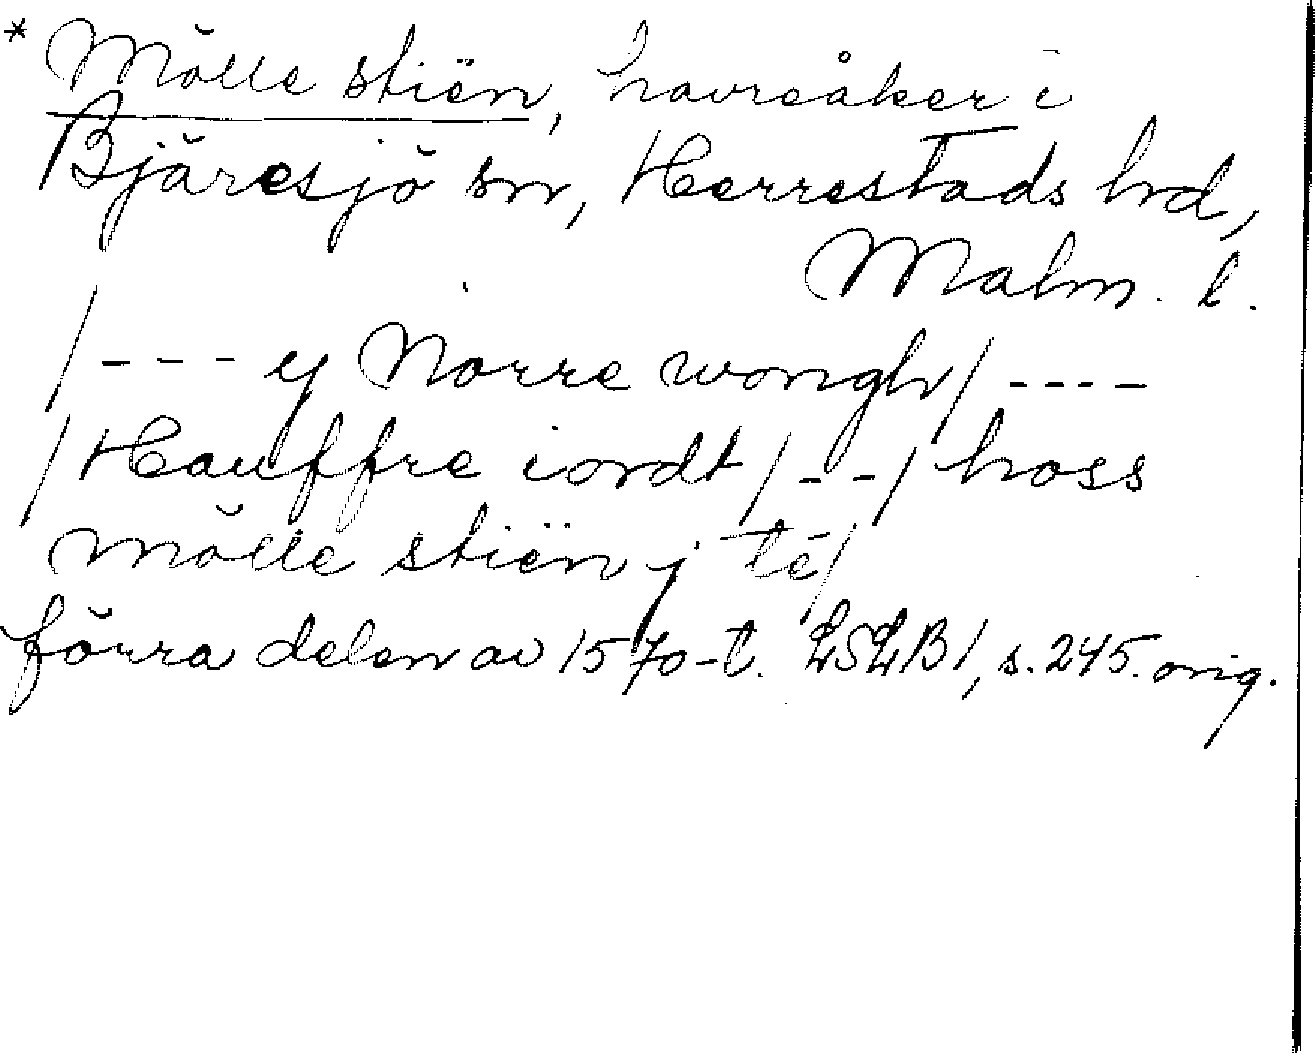 * Mölle stiën, havreåker i
Bjäresjö sn, Herrestads hd,
Malm. l.
/--- y Norre wongh/ ----
/Hauffre iordt/--/ hoss
mölle stiën j té/
förra delen av 1570-t. LSLB1, s. 245. orig.